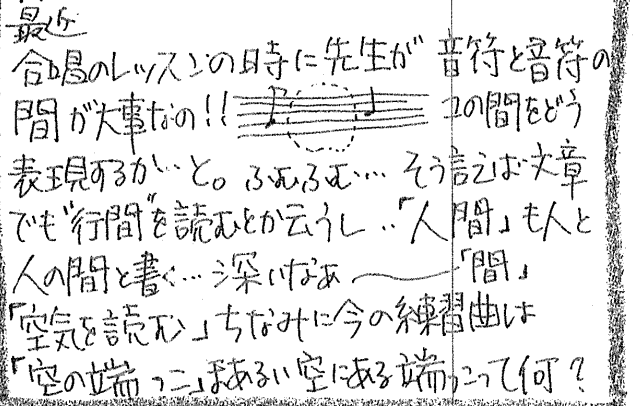 最近
合唱のレッスンの時に先生が 音符と音符の
間が大事なの!! コの間をどう
表現するか…と。ふむふむ… そう言えば文章
でも"行間"を読むとか云うし‥「人間」も人と
人の間と書く…深いなぁ〜「間」
「空気を読む」ちなみに今の練習曲は
「空の端っこ」まあるい空にある端っこって何?